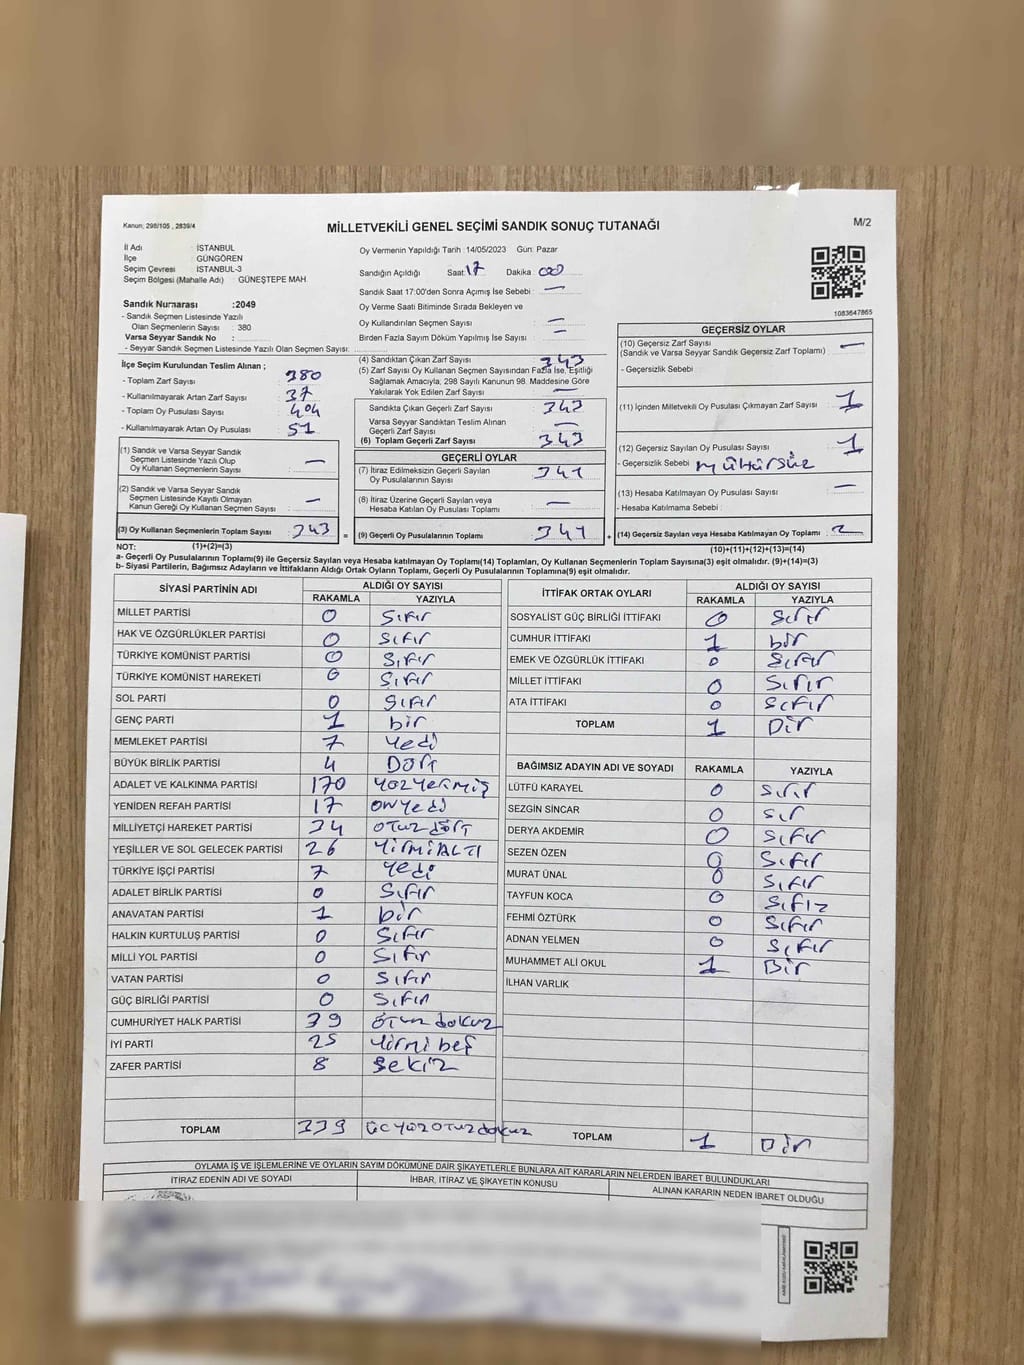 Kanun; 298/105 , 2839/4
MİLLETVEKİLİ GENEL SEÇİMİ SANDIK SONUÇ TUTANAĞI
M/2
İl Adı : İSTANBUL
İlçe : GÜNGÖREN
Seçim Çevresi : İSTANBUL-3
Seçim Bölgesi (Mahalle Adı) : GÜNEŞTEPE MAH
Sandık Numarası :2049
- Sandık Seçmen Listesinde Yazılı
Olan Seçmenlerin Sayısı : 380
Varsa Seyyar Sandık No :
- Seyyar Sandık Seçmen Listesinde Yazılı Olan Seçmen Sayısı:
Oy Vermenin Yapıldığı Tarih :14/05/2023 Gün: Pazar
Sandığın Açıldığı Saat:17 Dakika 00
Sandık Saat 17:00'den Sonra Açımış İse Sebebi: —
Oy Verme Saati Bitiminde Sırada Bekleyen ve
Oy Kullandırılan Seçmen Sayısı : —
Birden Fazla Sayım Döküm Yapılmış İse Sayısı : —
1083647865
İlçe Seçim Kurulundan Teslim Alınan ;
- Toplam Zarf Sayısı : 380
- Kullanılmayarak Artan Zarf Sayısı : 37
- Toplam Oy Pusulası Sayısı : 404
- Kullanılmayarak Artan Oy Pusulası : 51
(1) Sandık ve Varsa Seyyar Sandık
Seçmen Listesinde Yazılı Olup
Oy Kullanan Seçmenlerin Sayısı : —
(2) Sandık ve Varsa Seyyar Sandık
Seçmen Listesinde Kayıtlı Olmayan
Kanun Gereği Oy Kullanan Seçmen Sayısı : —
(3) Oy Kullanan Seçmenlerin Toplam Sayısı : 343 =
(1)+(2)=(3)
(4) Sandıktan Çıkan Zarf Sayısı : 343
(5) Zarf Sayısı Oy Kullanan Seçmen Sayısından Fazla İse, Eşitliği
Sağlamak Amacıyla, 298 Sayılı Kanunun 98. Maddesine Göre
Yakılarak Yok Edilen Zarf Sayısı : —
Sandıkta Çıkan Geçerli Zarf Sayısı : 343
Varsa Seyyar Sandıktan Teslim Alınan
Geçerli Zarf Sayısı : —
(6) Toplam Geçerli Zarf Sayısı : 343
GEÇERLİ OYLAR
(7) İtiraz Edilmeksizin Geçerli Sayılan
Oy Pusulalarının Sayısı : 341
(8) İtiraz Üzerine Geçerli Sayılan veya
Hesaba Katılan Oy Pusulası Toplamı : —
(9) Geçerli Oy Pusulalarının Toplamı : 341 +
GEÇERSİZ OYLAR
(10) Geçersiz Zarf Sayısı
(Sandık ve Varsa Seyyar Sandık Geçersiz Zarf Toplamı) : —
- Geçersizlik Sebebi :
(11) İçinden Milletvekili Oy Pusulası Çıkmayan Zarf Sayısı : 1
(12) Geçersiz Sayılan Oy Pusulası Sayısı : 1
- Geçersizlik Sebebi : mühürsüz
(13) Hesaba Katılmayan Oy Pusulası Sayısı : —
- Hesaba Katılmama Sebebi :
(14) Geçersiz Sayılan veya Hesaba Katılmayan Oy Toplamı : 2
(10)+(11)+(12)+(13)=(14)
NOT:
a- Geçerli Oy Pusulalarının Toplamı(9) ile Geçersiz Sayılan veya Hesaba katılmayan Oy Toplamı(14) Toplamları, Oy Kullanan Seçmenlerin Toplam Sayısına(3) eşit olmalıdır. (9)+(14)=(3)
b- Siyasi Partilerin, Bağımsız Adayların ve İttifakların Aldığı Ortak Oyların Toplamı, Geçerli Oy Pusulalarının Toplamına(9) eşit olmalıdır.
SİYASİ PARTİNİN ADI ALDIĞI OY SAYISI
RAKAMLA YAZIYLA
MİLLET PARTİSİ 0 sıfır
HAK VE ÖZGÜRLÜKLER PARTİSİ 0 sıfır
TÜRKİYE KOMÜNİST PARTİSİ 0 sıfır
TÜRKİYE KOMÜNİST HAREKETİ 0 sıfır
SOL PARTİ 0 sıfır
GENÇ PARTİ 1 bir
MEMLEKET PARTİSİ 7 yedi
BÜYÜK BİRLİK PARTİSİ 4 Dört
ADALET VE KALKINMA PARTİSİ 170 yüzyetmiş
YENİDEN REFAH PARTİSİ 17 onyedi
MİLLİYETÇİ HAREKET PARTİSİ 34 otuzdört
YEŞİLLER VE SOL GELECEK PARTİSİ 26 YİRMİALTI
TÜRKİYE İŞÇİ PARTİSİ 7 yedi
ADALET BİRLİK PARTİSİ 0 sıfır
ANAVATAN PARTİSİ 1 bir
HALKIN KURTULUŞ PARTİSİ 0 sıfır
MİLLİ YOL PARTİSİ 0 sıfır
VATAN PARTİSİ 0 sıfır
GÜÇ BİRLİĞİ PARTİSİ 0 sıfır
CUMHURİYET HALK PARTİSİ 39 otuz dokuz
İYİ PARTİ 25 yirmi beş
ZAFER PARTİSİ 8 sekiz
TOPLAM 339 üçyüzotuzdokuz
İTTİFAK ORTAK OYLARI ALDIĞI OY SAYISI
RAKAMLA YAZIYLA
SOSYALİST GÜÇ BİRLİĞİ İTTİFAKI 0 sıfır
CUMHUR İTTİFAKI 1 bir
EMEK VE ÖZGÜRLÜK İTTİFAKI 0 sıfır
MİLLET İTTİFAKI 0 sıfır
ATA İTTİFAKI 0 sıfır
TOPLAM 1 Bir
BAĞIMSIZ ADAYIN ADI VE SOYADI RAKAMLA YAZIYLA
LÜTFÜ KARAYEL 0 sıfır
SEZGİN SİNCAR 0
DERYA AKDEMİR 0 sıfır
SEZEN ÖZEN 0 sıfır
MURAT ÜNAL 0 sıfır
TAYFUN KOCA 0 sıfız
FEHMİ ÖZTÜRK 0 sıfır
ADNAN YELMEN 0 sıfır
MUHAMMET ALİ OKUL 1 Bir
İLHAN VARLIK
TOPLAM 1 Bir
OYLAMA İŞ VE İŞLEMLERİNE VE OYLARIN SAYIM DÖKÜMÜNE DAİR ŞİKAYETLERLE BUNLARA AİT KARARLARIN NELERDEN İBARET BULUNDUKLARI
İTİRAZ EDENİN ADI VE SOYADI İHBAR, İTİRAZ VE ŞİKAYETİN KONUSU ALINAN KARARIN NEDEN İBARET OLDUĞU